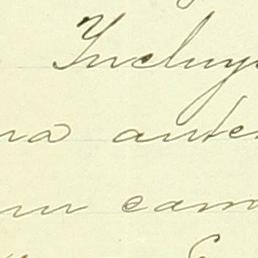 Incluy
na ante
un cam